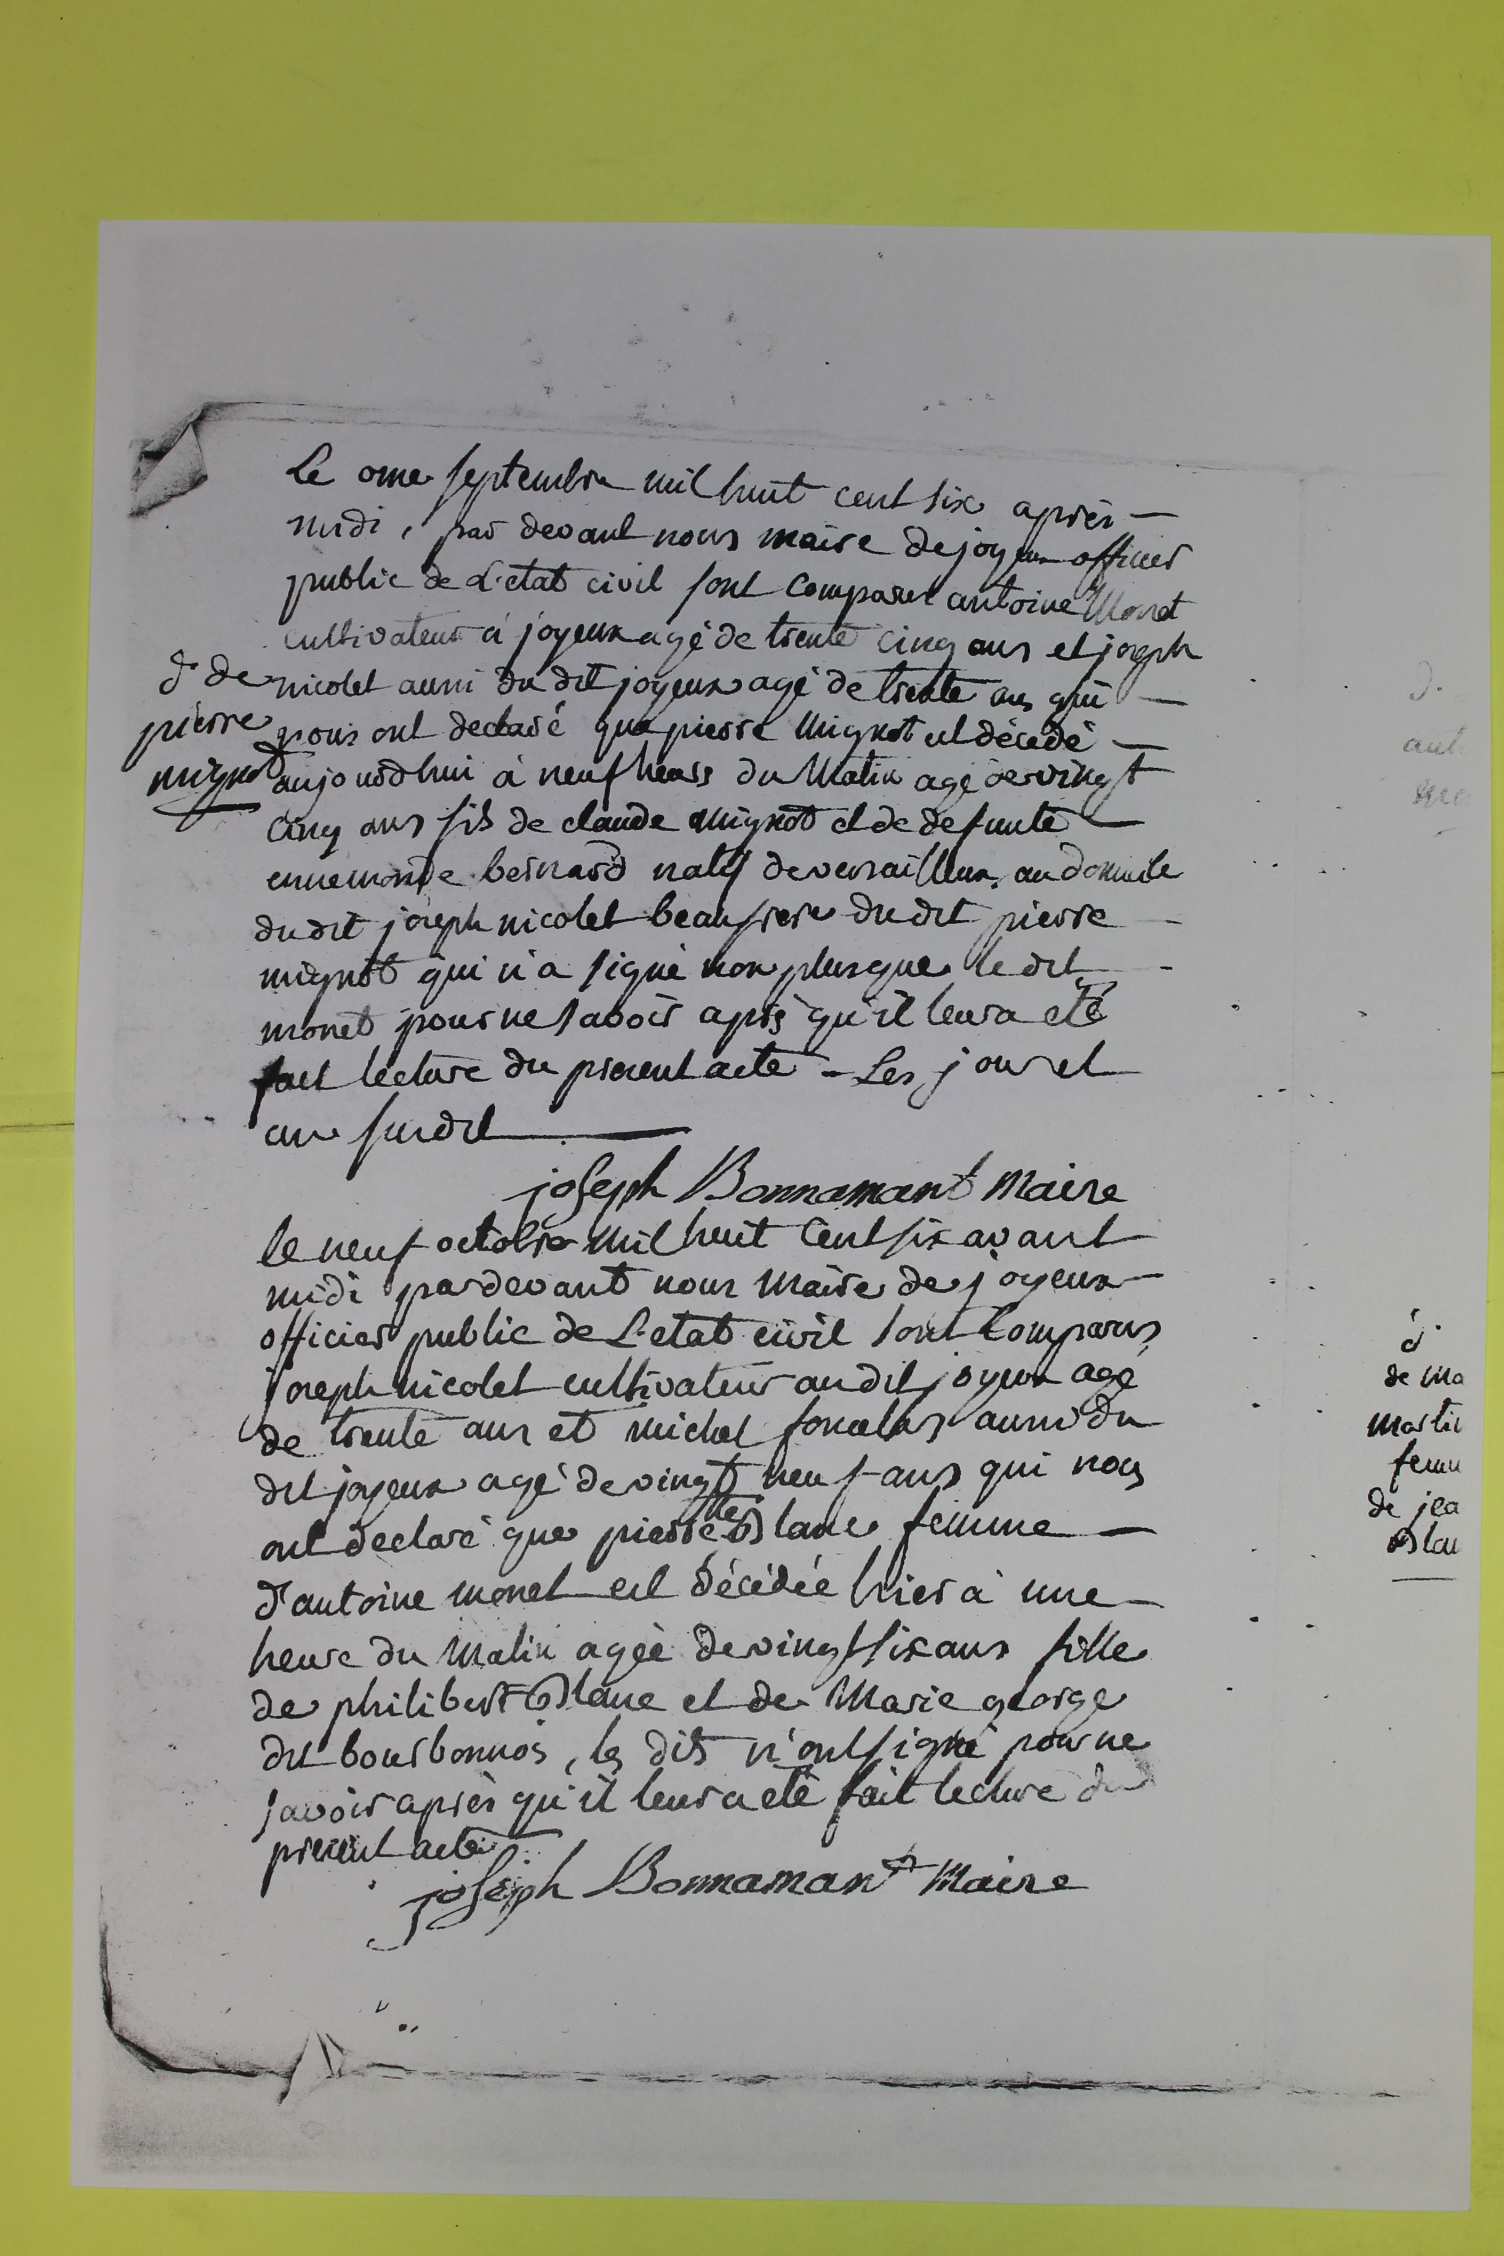 Le onze septembre mil huit cent six après
midi, par devant nous maire de joyeux officier
public de L'etat civil sont comparus antoine Monet
cultivateur à joyeux agé de trente cinq ans et joseph
nicolet aussi du dit joyeux agé de trente ans qui
nous ont declaré que pierre Mignot est décédé
aujourdhui à neuf heurs du Matin agé de vingt
cinq ans fils de claude Mignot et de defunte
ennemonde bernard natif de versailleux, au domicile
du dit joseph nicolet beaufrere du dit pierre
mignot qui n'a signé non plus que le dit
monet pour ne savoir après qu'il leur a eté
fait lecture du present acte - Les jour et
an susdit
d. de
pierre
mignot
joseph Bonnamant Maire
le neuf octobre mil huit cent six avant
midi pardevant nous Maire de joyeux
officier public de L'etat civil sont comparus
joseph nicolet cultivateur au dit joyeux agé
de trente ans et michel aussi du
dit joyeux agé de vingt neuf ans qui nous
ont declaré que pierrette Blanc femme
d'antoine monet est décédée hier à une
heure du Matin agée de vingt six ans fille
de philibert Blanc et de Marie george
dit bourbonnois, les dits n'ont signé pour ne
savoir après qu'il leur a eté fait lecture du
present acte
joseph Bonnamant Maire
d.
aut
d.
de ma
martin
femm
de jea
Blan